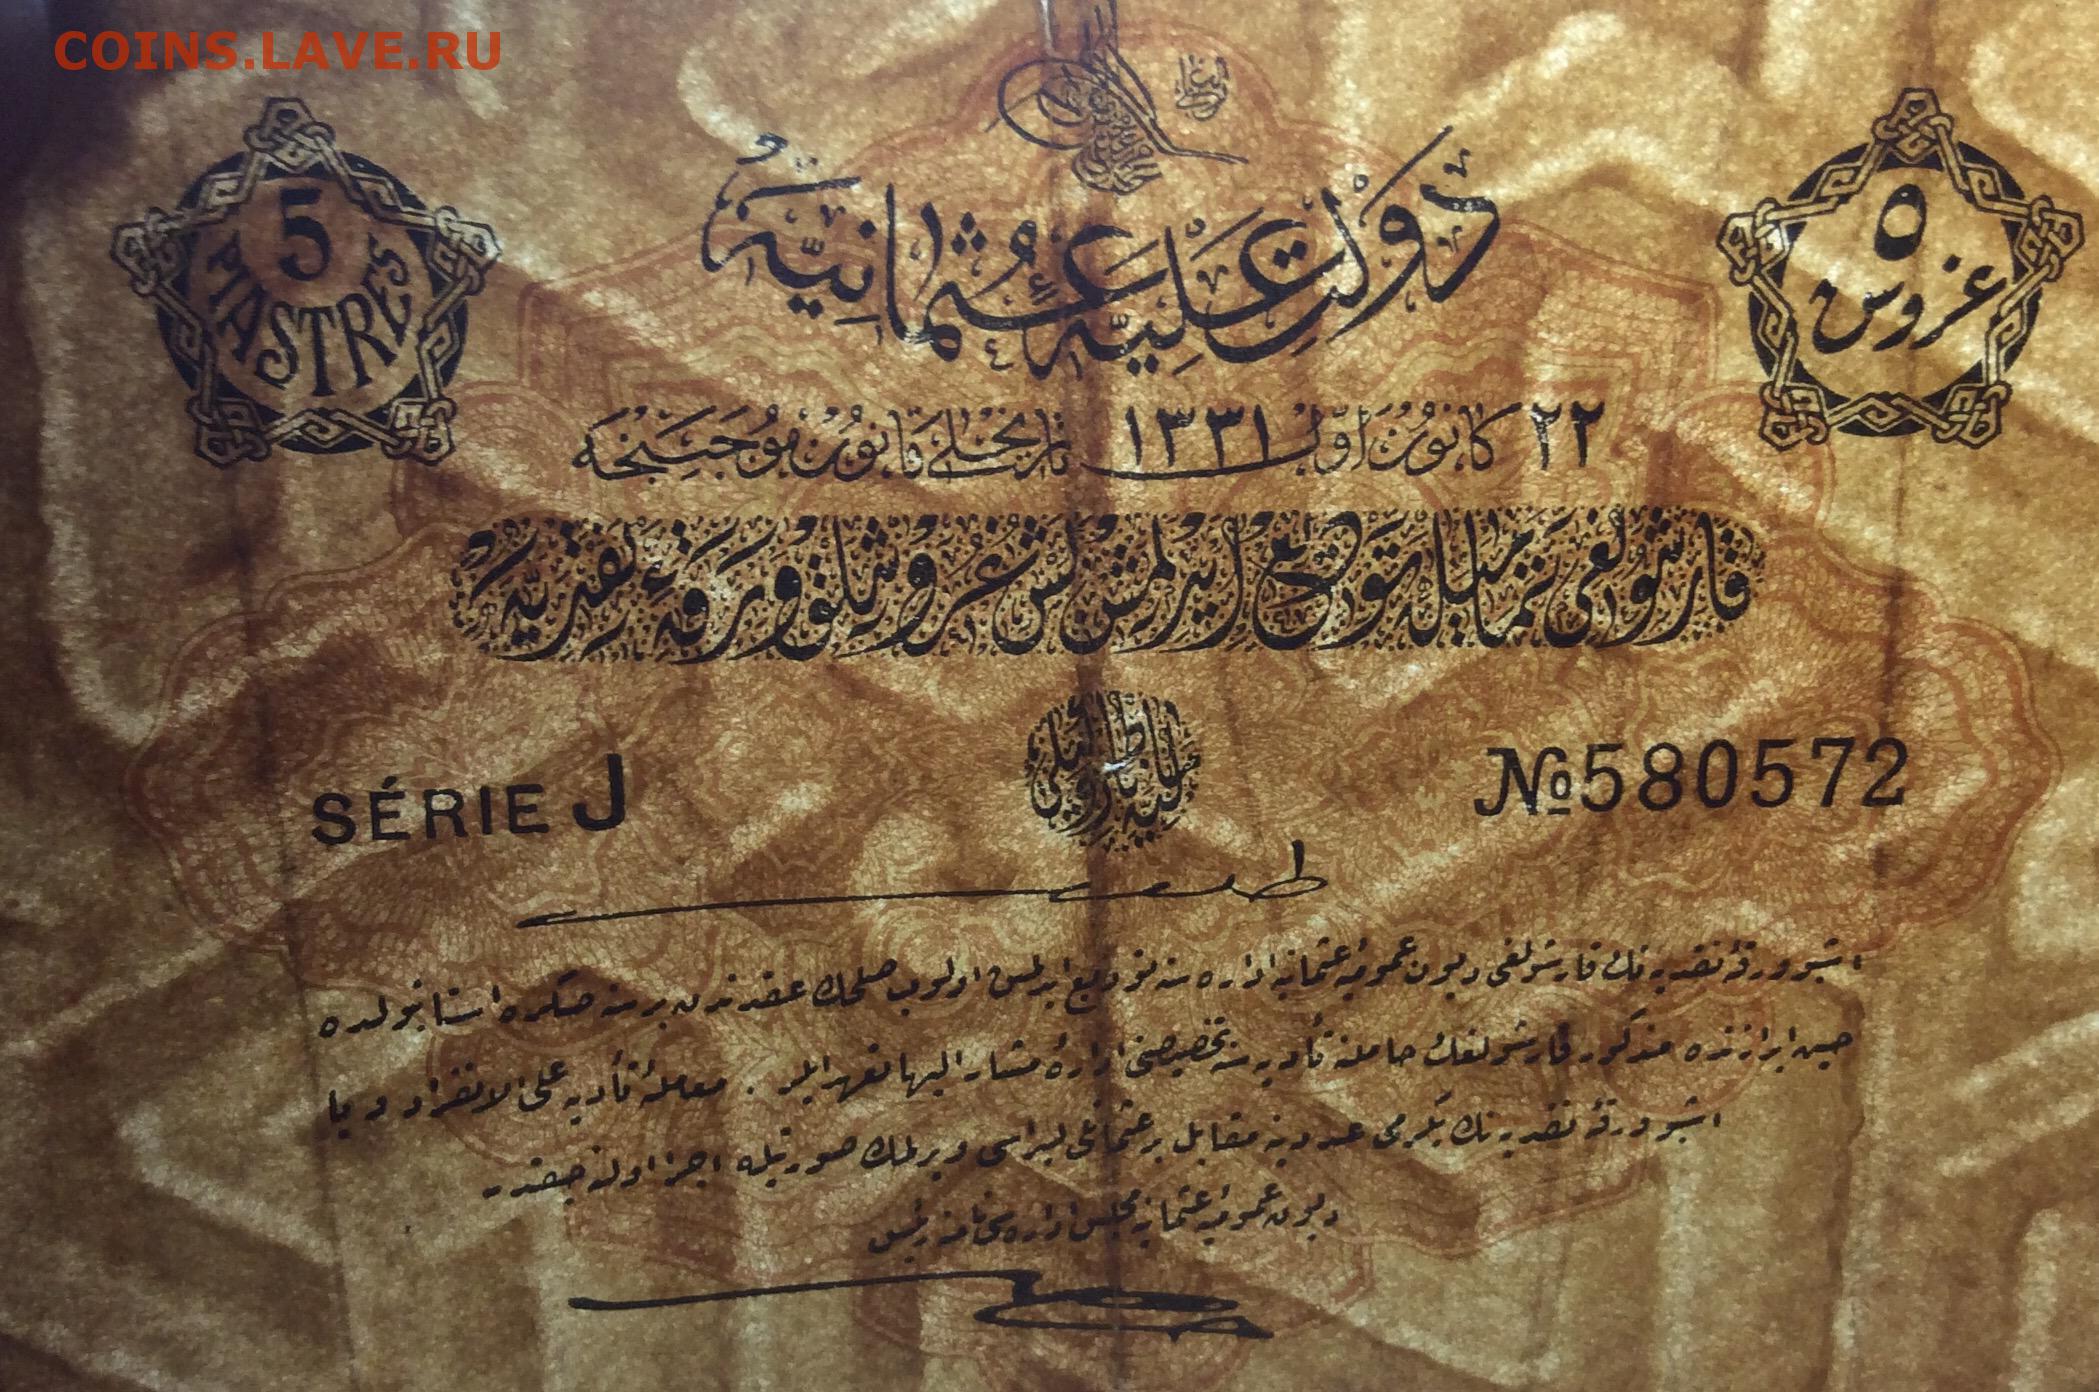 COINS.LAVE.RU
5
PIASTRES
٥
غروش
دولت علیهٔ عثمانیه
٢٢ كانون اول ١٣٣١ تاریخلی قانون موجبنجه
قارشولغی تماميله تودیع ایدلمش بش غروشلق ورقهٔ نقدیه
SÉRIE J
№580572
اشبو ورقهٔ نقدیه نك قارشولغی دیون عمومیهٔ عثمانیه اداره سنه تودیع ایدلمش اولوب صلحك عقدندن بر سنه صكره استانبولده
حین ابرازنده مذكور قارشولغك حاملنه تأدیه سنه تخصیصنی ادارهٔ مشار الیها تعهد ایلر . معاملهٔ تأدیه علی الانفراد و یا
اشبو ورقهٔ نقدیه نك یكرمی عددینه مقابل بر عثمانلی لیراسی ویرلمك صورتیله اجرا اولنه جقدر
دیون عمومیهٔ عثمانیه مجلس اداره سی نامنه رئیس